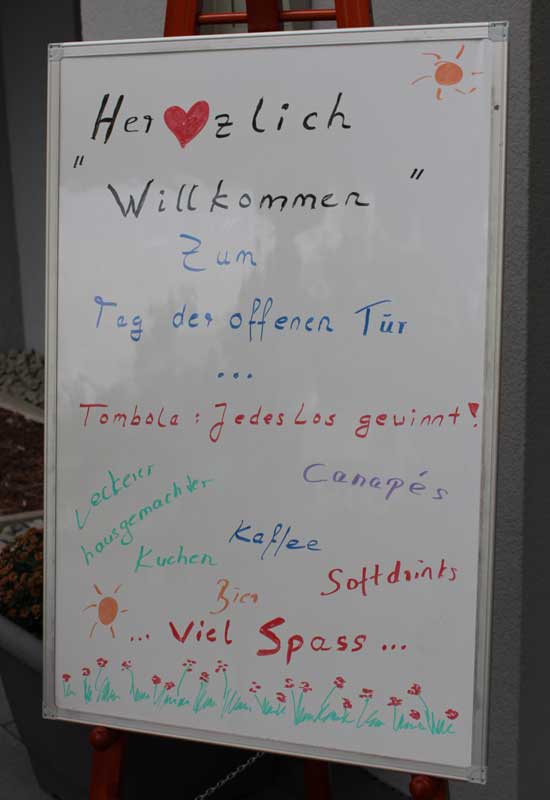 Her zlich
"Willkommen"
Zum
Tag der offenen Tür
...
Tombola : Jedes Los gewinnt!
Leckerer
hausgemachter
Kuchen
Canapés
Kaffee
Softdrinks
Bier
... Viel Spass ...